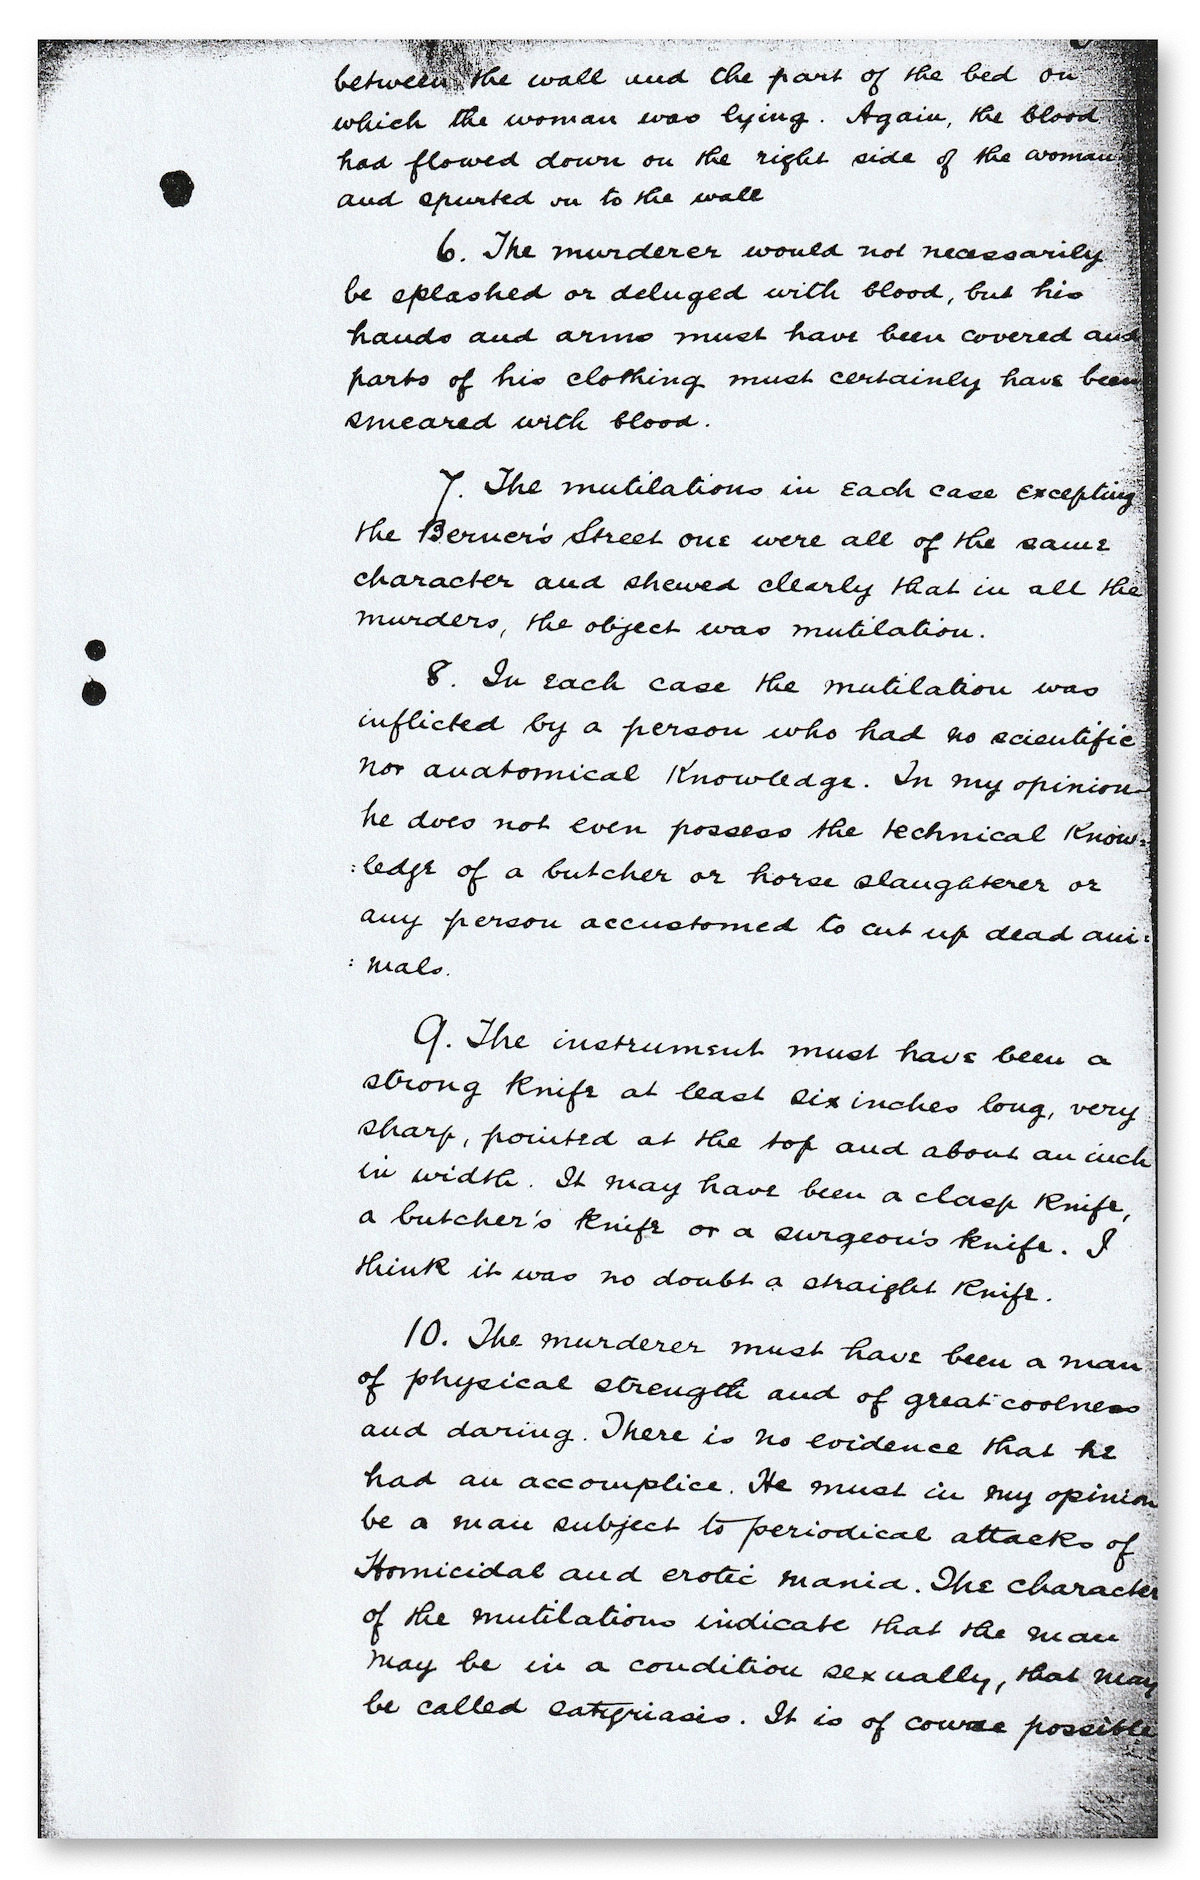 between the wall and the part of the bed on
which the woman was lying. Again, the blood
had flowed down on the right side of the woman
and spurted on to the wall
6. The murderer would not necessarily
be splashed or deluged with blood, but his
hands and arms must have been covered and
parts of his clothing must certainly have been
smeared with blood.
7. The mutilations in each case excepting
the Berner's Street one were all of the same
character and shewed clearly that in all the
murders, the object was mutilation.
8. In each case the mutilation was
inflicted by a person who had no scientific
nor anatomical knowledge. In my opinion
he does not even possess the technical know:
:ledge of a butcher or horse slaughterer or
any person accustomed to cut up dead ani:
:mals.
9. The instrument must have been a
strong knife at least six inches long, very
sharp, pointed at the top and about an inch
in width. It may have been a clasp knife,
a butcher's knife or a surgeon's knife. I
think it was no doubt a straight knife.
10. The murderer must have been a man
of physical strength and of great coolness
and daring. There is no evidence that he
had an accomplice. He must in my opinion
be a man subject to periodical attacks of
Homicidal and erotic mania. The character
of the mutilations indicate that the man
may be in a condition sexually, that may
be called satyriasis. It is of course possible